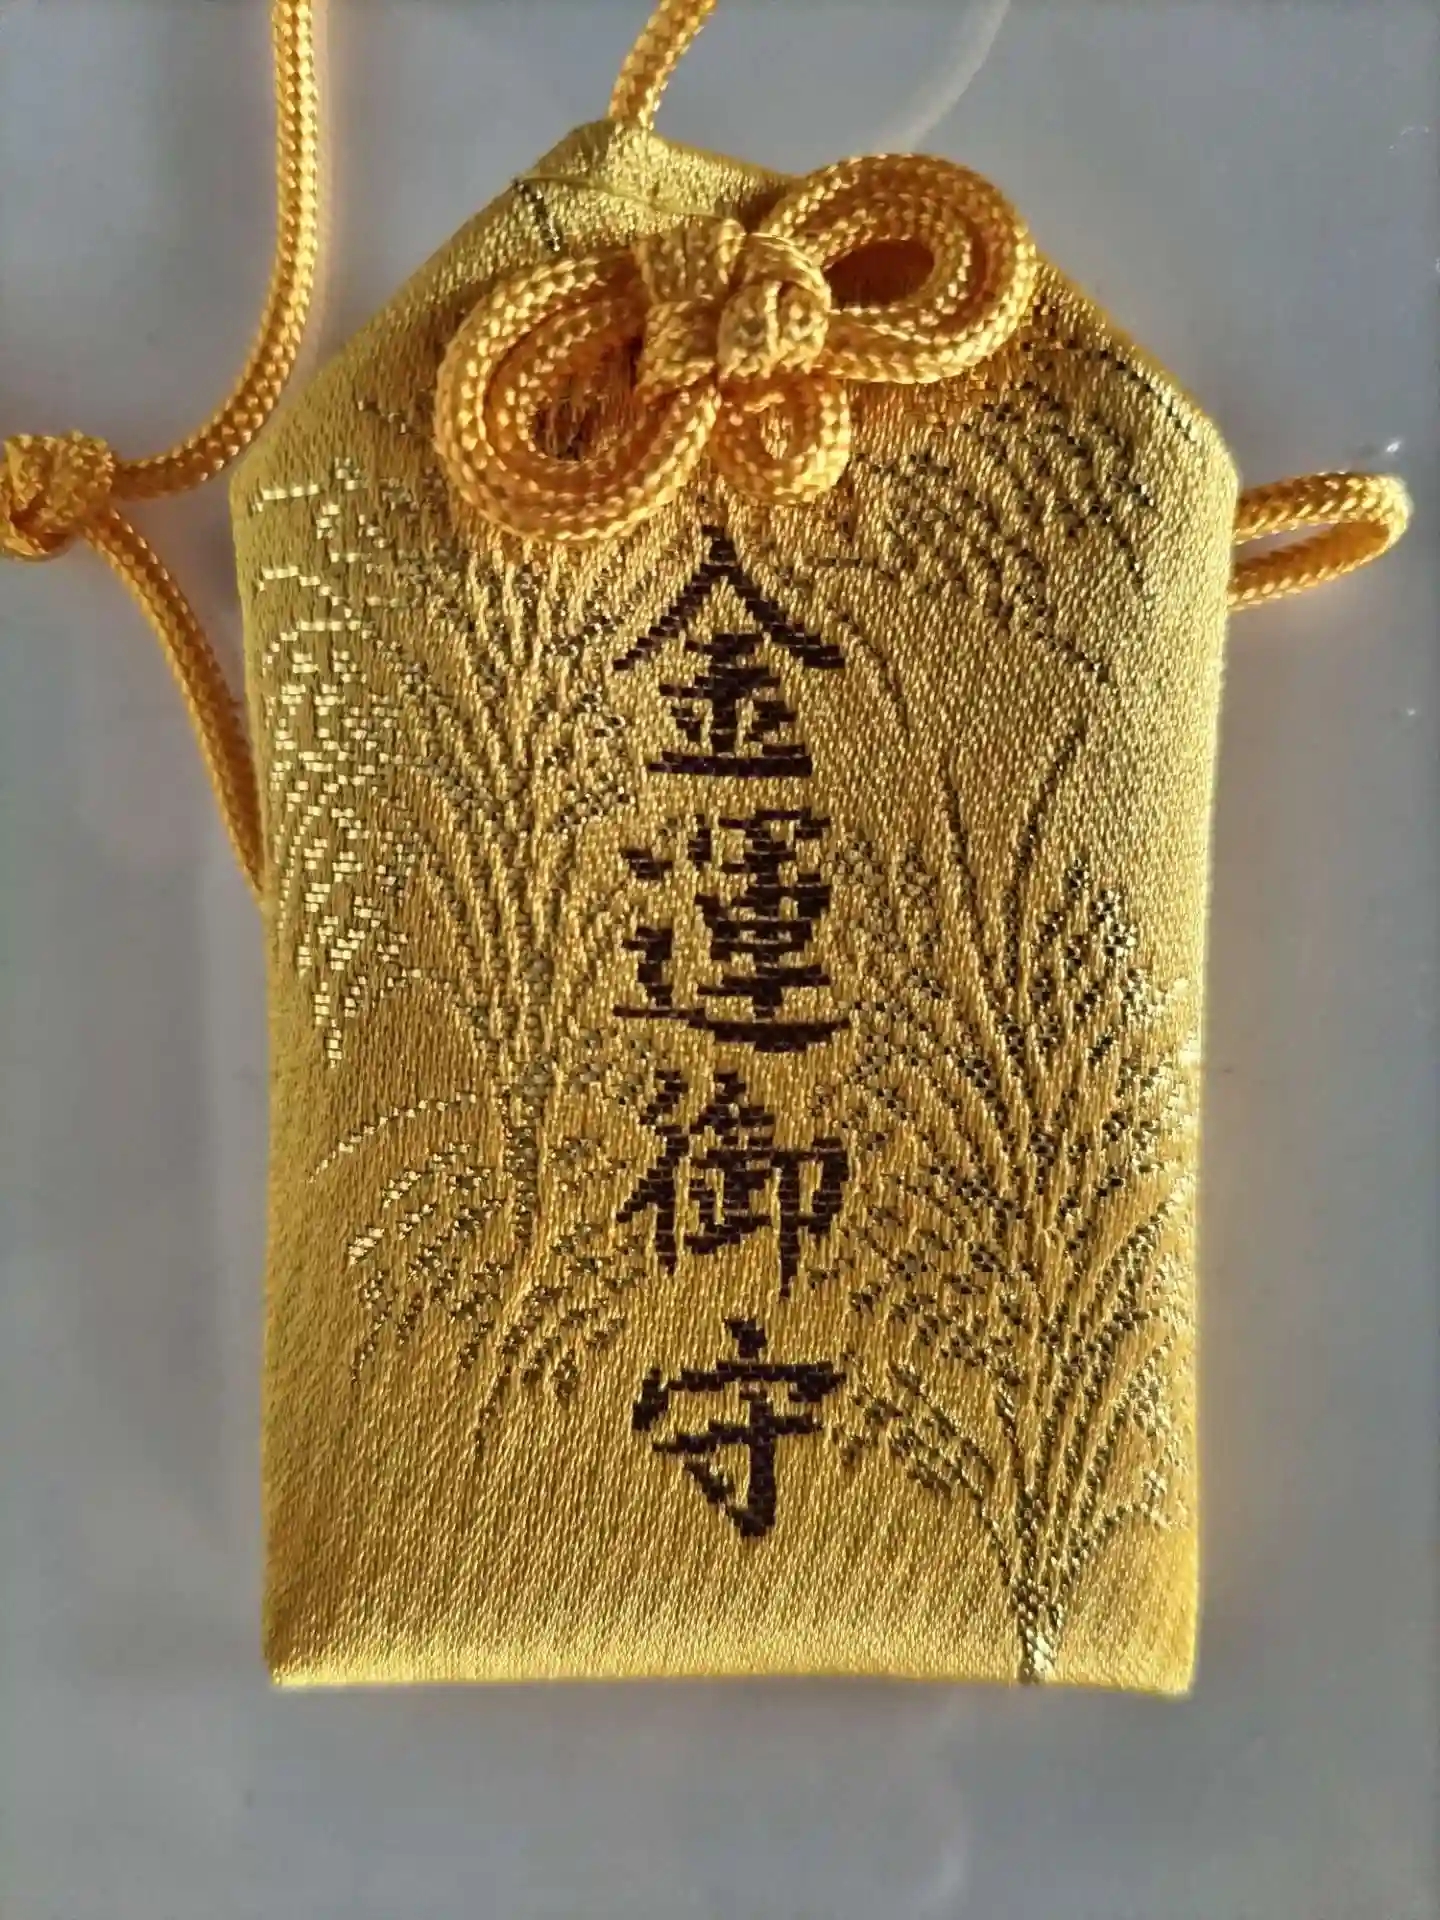 金運御守